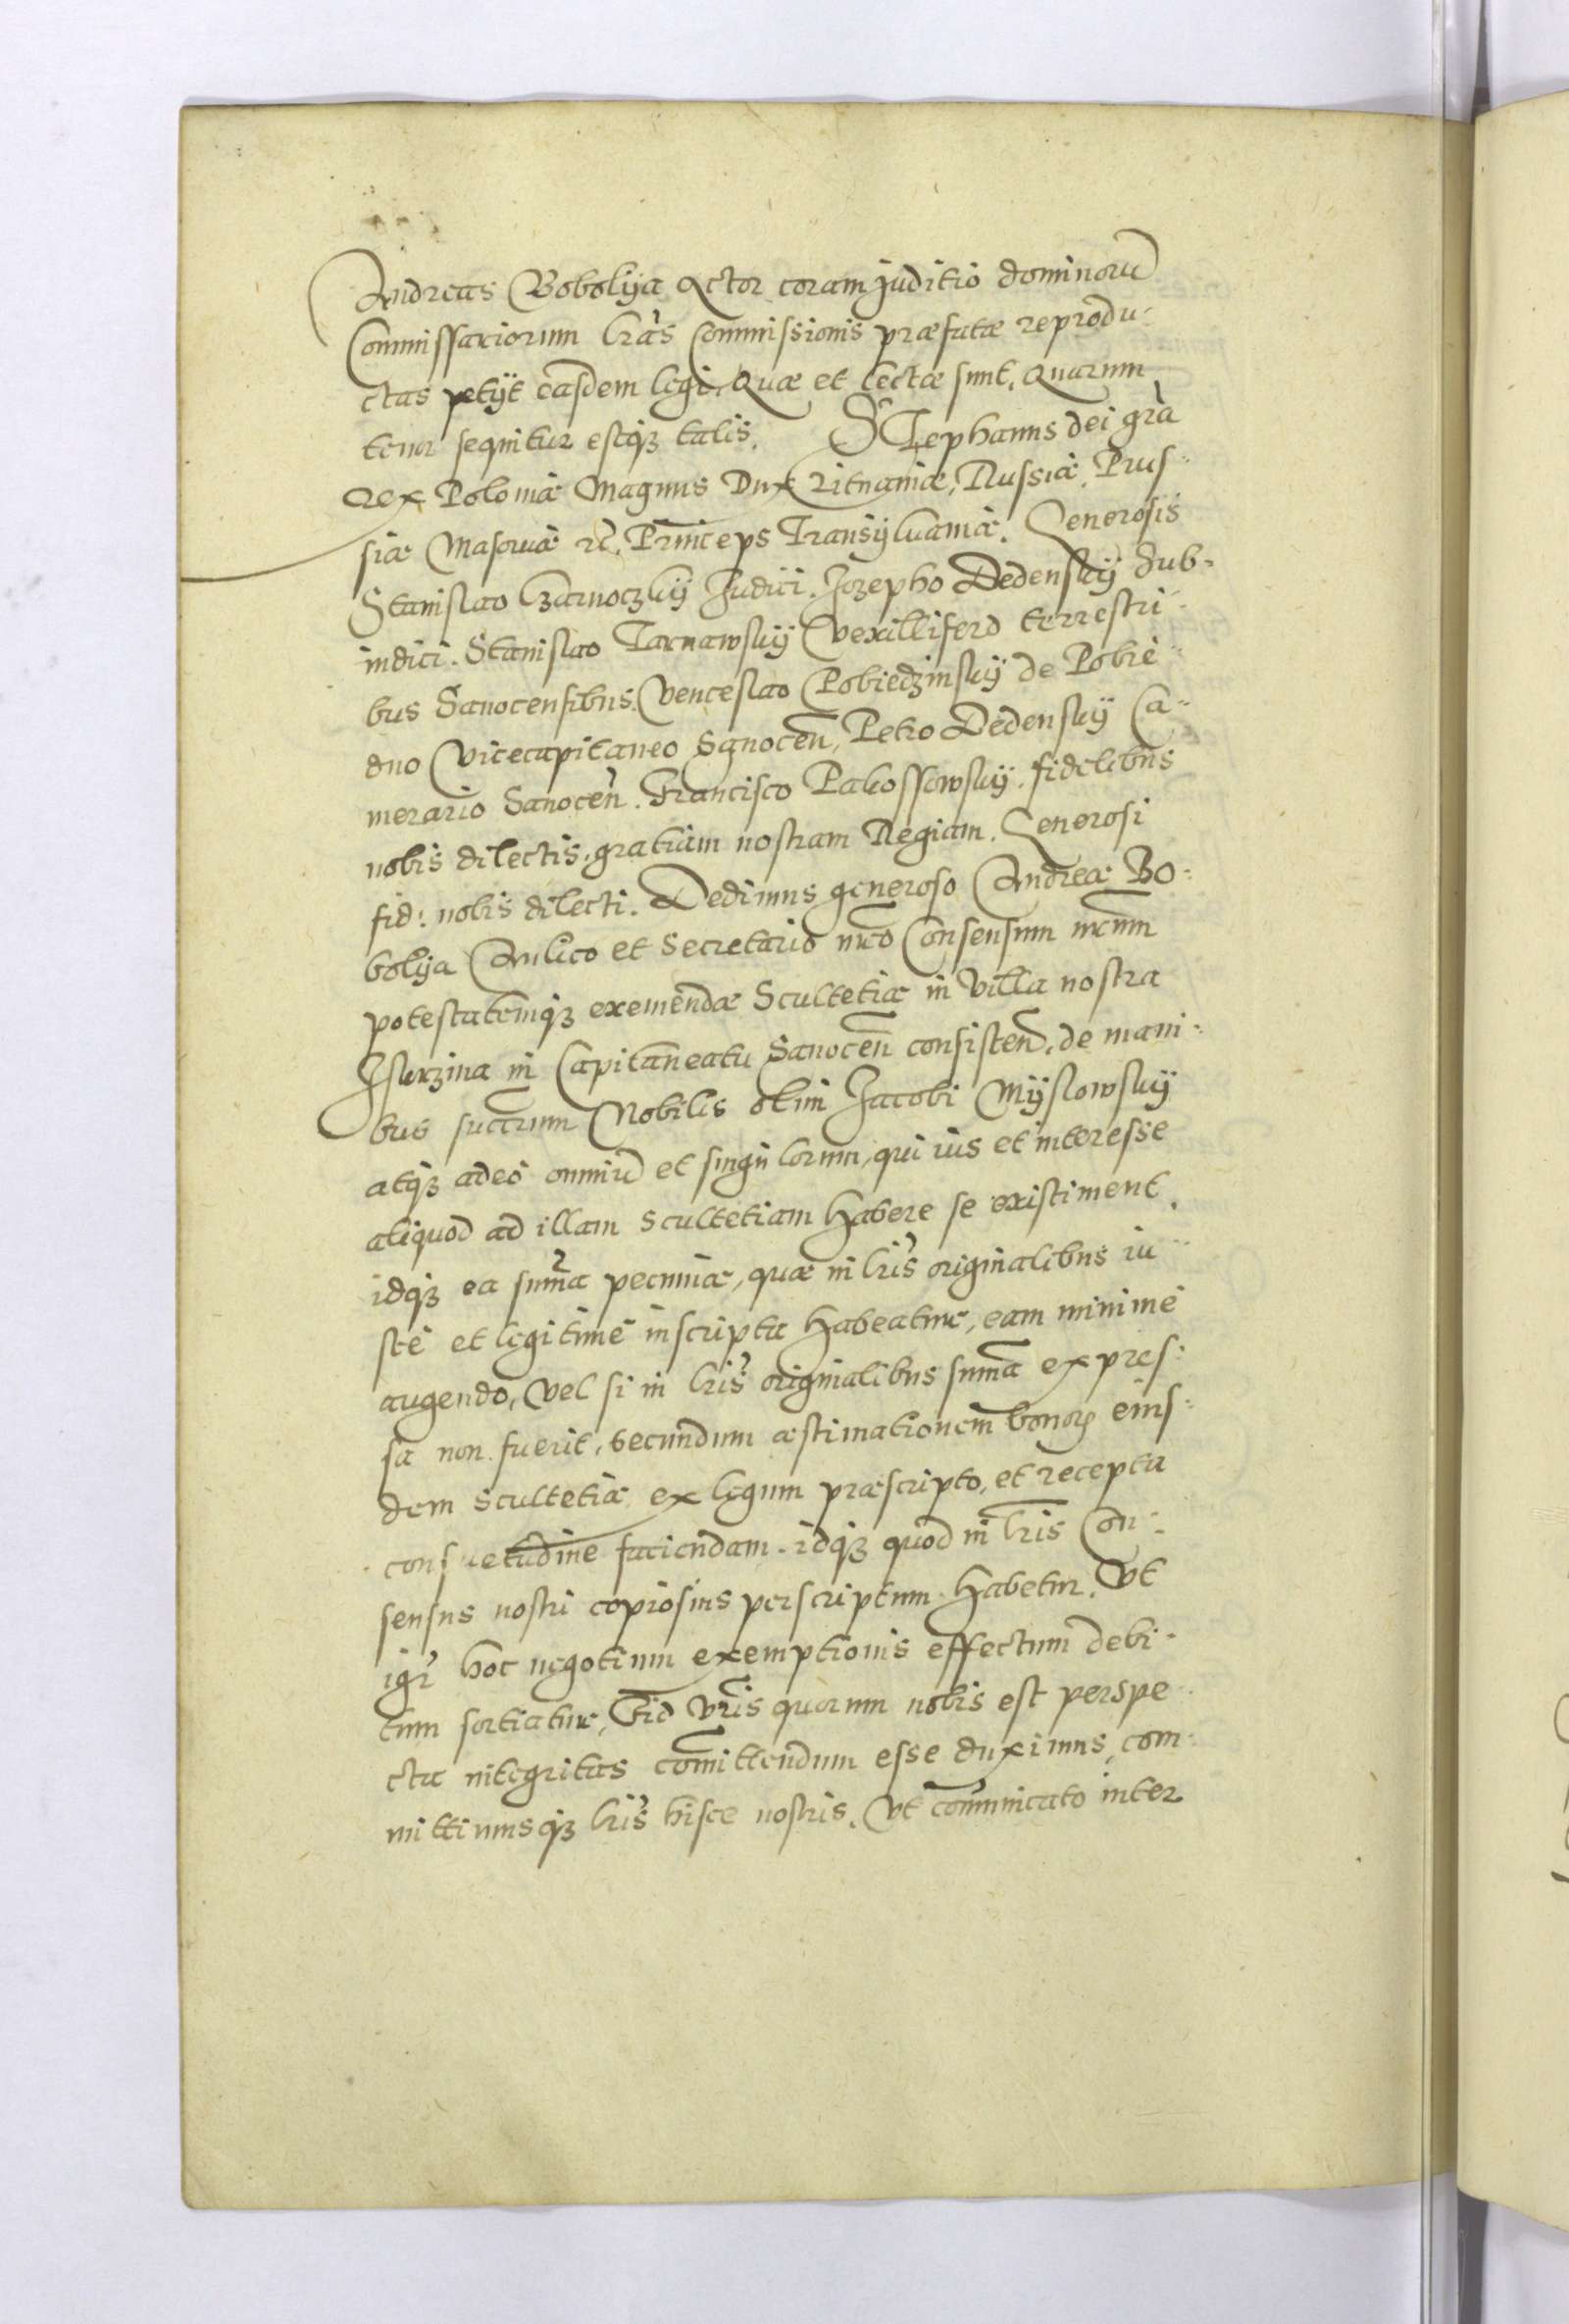 Andreas Bobolÿa Actor coram juditio dominorũ
Commissariorum lrãs Commissionis præfatæ reprodu-
ctas petÿt easdem legi. Quæ et lectæ sunt. Quarum
tenor sequitur estq₃ talis. Stephanus dei grã
Rex Poloniæ Magnus Dux Lituaniæ, Russiæ, Prus-
siæ Masouiæ rc̃. Princeps Transÿluaniæ. Generosis
Stanislao Czarnoczkÿ Judici. Jozepho Dedenskÿ Sub-
iudici. Stanislao Tarnawskÿ Vexillifero terrestri-
bus Sanocensibus. Venceslao Pobiedzinskÿ de Pobie-
dno Vicecapitaneo Sanoceñ, Petro Dedenskÿ Ca-
merario Sanoceñ. Francisco Pakossowskÿ. fidelibus
nobis dilectis, gratiam nostram Regiam. Generosi
fid: nobis dilecti. Dedimus generoso Andreæ Bo-
bolÿa Aulico et Secretario nr̃o Consensum nr̃um
potestatemq₃ exemendæ Scultetiæ in Villa nostra
Iskrzina in Capitaneatu Sanoceñ consisteñ. de mani-
bus succrum Nobilis olim Jacobi Mÿslowskÿ
atq₃ adeo omniũ et singulorum, qui ius et interesse
aliquod ad illam Scultetiam habere se existiment.
idq₃ ea sum̃a pecuniæ, quæ in lris̃ originalibus iu-
ste et legitime inscripta habeatur, eam minime
augendo, Vel si in lris̃ originalibus sum̃a expres-
sa non fuerit, secundum æstimationem bonoꝝ eius-
dem Scultetiæ ex legum præscripto, et recepta
consuetudine faciendam. idq₃ quod in lris̃ Con-
sensus nostri copiosius perscriptum habetur. Vt
igr̃ hoc negotium exemptionis effectum debi-
tum sortiatur, Fid Vr̃is quorum nobis est perspe-
cta integritas com̃ittendum esse duximus, com-
mittimusq₃ lris̃ hisce nostris. Vt com̃unicato inter